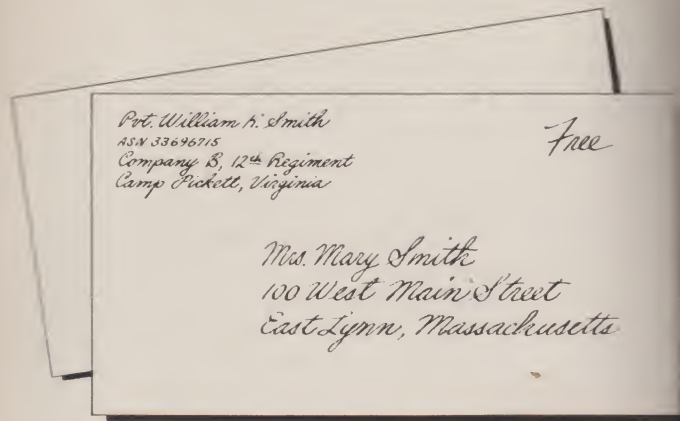 Pvt. William K. Smith
ASN 33696715
Company B, 12th Regiment
Camp Pickett, Virginia
Free
Mrs. Mary Smith
100 West Main Street
East Lynn, Massachusetts